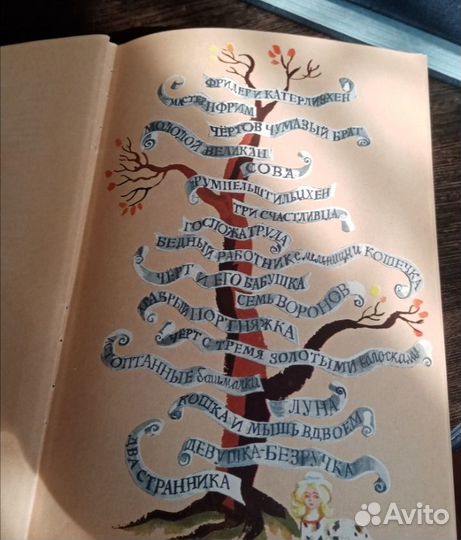 ФРИДЕР И КАТЕРЛИЗХЕН
МАСТЕР ПФРИМ
ЧЁРТОВ ЧУМАЗЫЙ БРАТ
МОЛОДОЙ ВЕЛИКАН
СОВА
РУМПЕЛЬШТИЛЬЦХЕН
ТРИ СЧАСТЛИВЦА
ГОСПОЖА ТРУДА
БЕДНЫЙ РАБОТНИК с мельницы И КОШЕЧКА
ЧЕРТ И ЕГО БАБУШКА
СЕМЬ ВОРОНОВ
ХРАБРЫЙ ПОРТНЯЖКА
ЧЕРТ С ТРЕМЯ ЗОЛОТЫМИ волосками
ИСТОПТАННЫЕ башмачки
ЛУНА
КОШКА И МЫШЬ ВДВОЕМ
ДЕВУШКА-БЕЗРУЧКА
ДВА СТРАННИКА
Avito